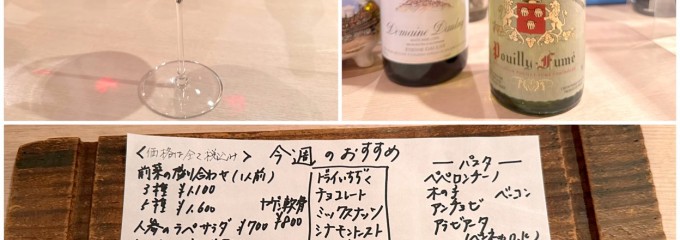 Domaine Dauby
Pouilly-Fumé
<価格は全て税込み> 今週のおすすめ
前菜の盛り合わせ(1人前)
3種 ¥1,100
5種 ¥1,600
人参のラペサラダ ¥700
ヤゲン軟骨
¥800
ドライいちぢく
チョコレート
ミックスナッツ
シナモントースト
ーパスター
ペペロンチーノ
木の子 ベーコン
アンチョビ
アラビアータ